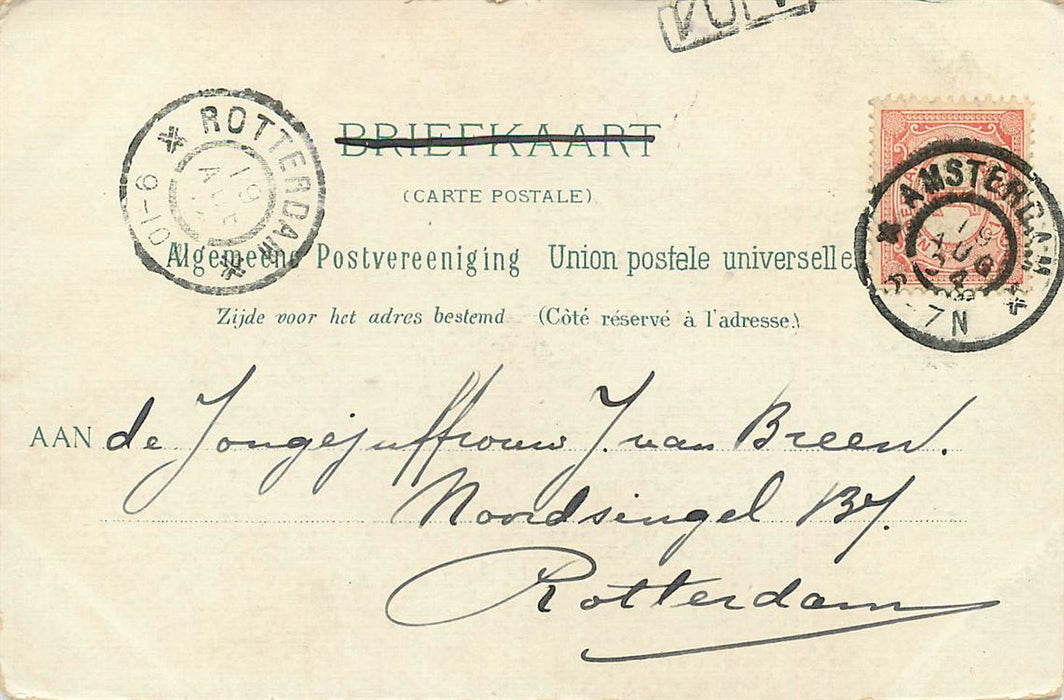 ROTTERDAM
19
9-10
BRIEFKAART
(CARTE POSTALE)
AMSTERDAM
AUG
7N
Algemeene Postvereeniging Union postale universelle
Zijde voor het adres bestemd (Côté réservé à l'adresse.)
AAN de Jongejuffrouw J. van Breen.
Noordsingel
Rotterdam